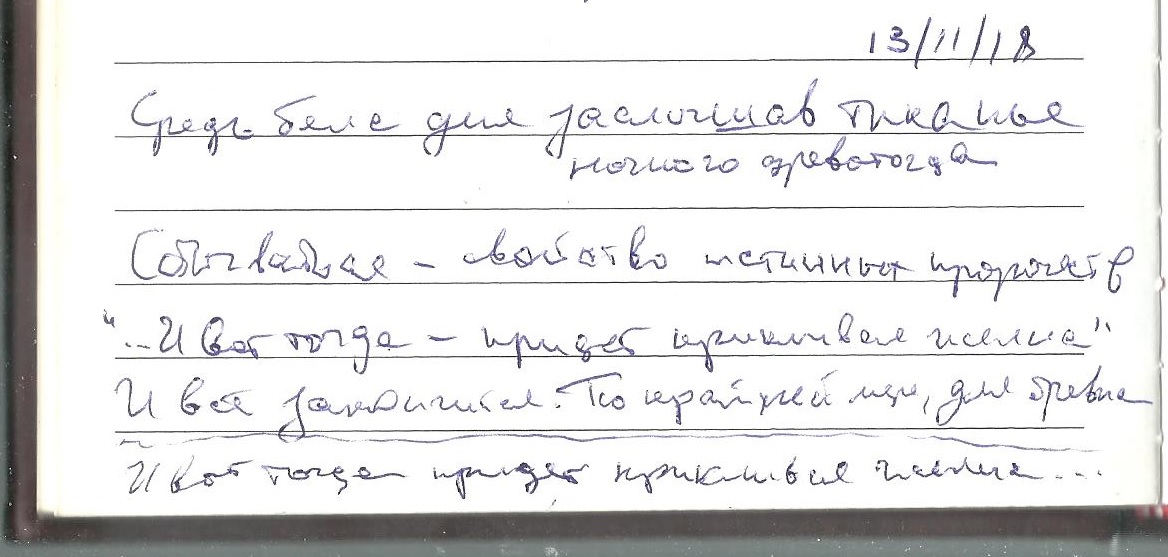 13/11/18
Средь бела дня заслышав тиканье
ночного древоточца
Сбываться – свойство истинных пророчеств
"...И вот тогда – придет крикливая желна"
И всё закончится. По крайней мере, для бревна
И вот тогда придет крикливая желна...